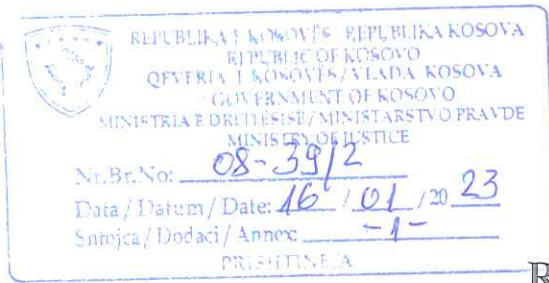 REPUBLIKA E KOSOVËS REPUBLIKA KOSOVA
REPUBLIC OF KOSOVO
QEVERIA E KOSOVËS / VLADA KOSOVA
GOVERNMENT OF KOSOVO
MINISTRIA E DREJTËSISË / MINISTARSTVO PRAVDE
MINISTRY OF JUSTICE
Nr.Br.No: 08-39/2
Data / Datum / Date: 16 / 01 / 20 23
/ Dodaci / Annex: -1-
R